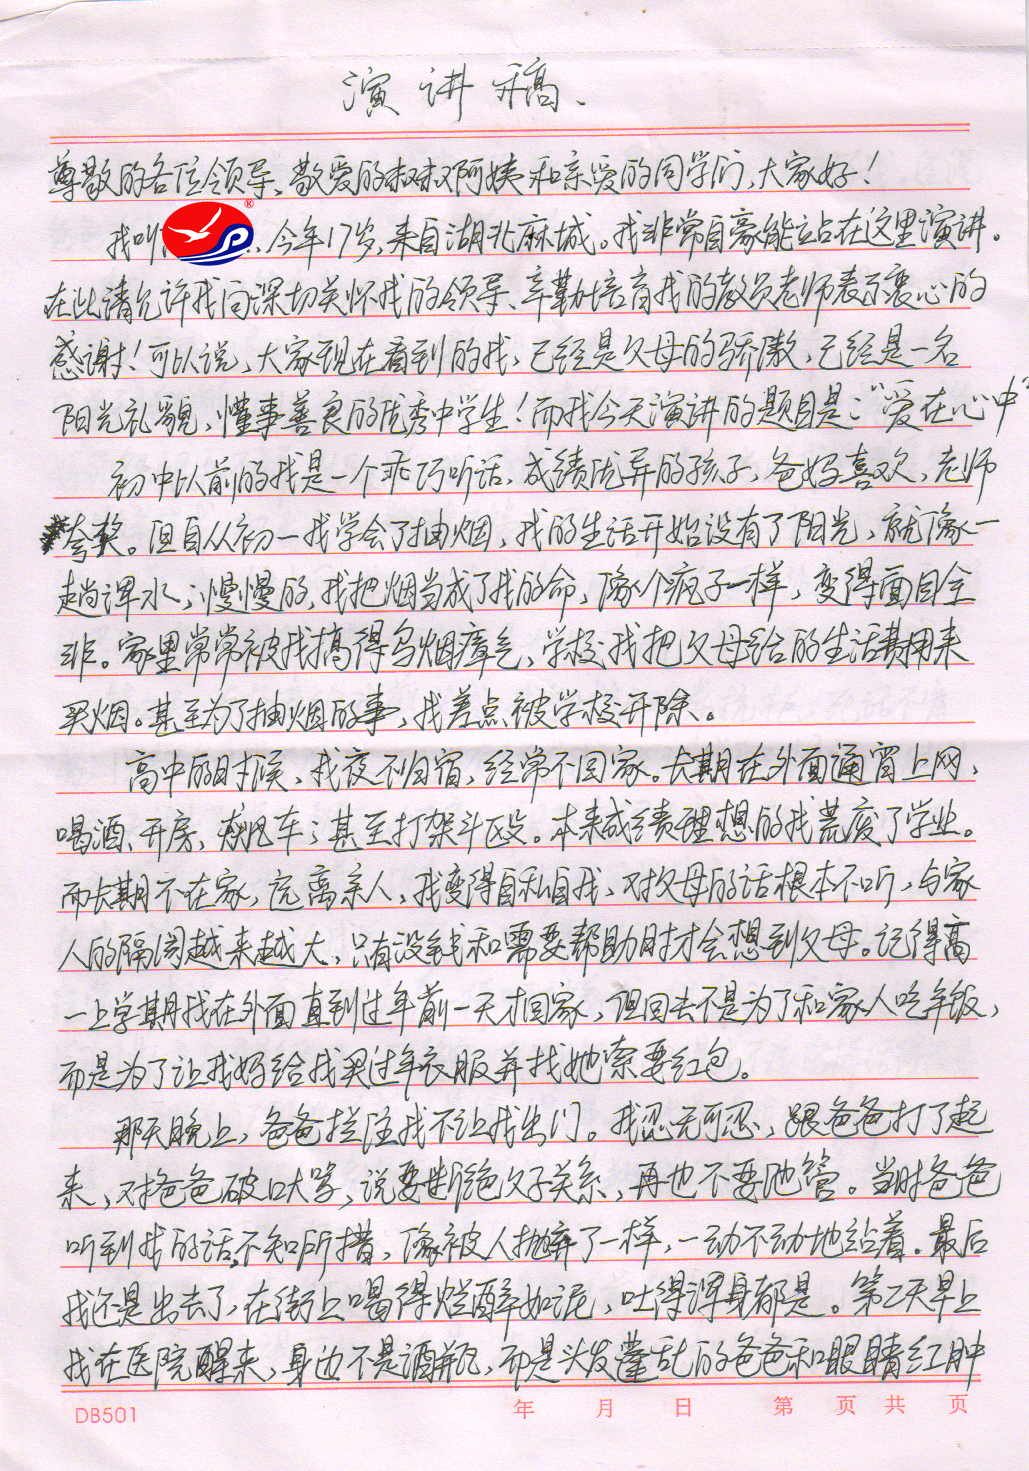 演讲稿、
尊敬的各位领导、敬爱的叔叔阿姨和亲爱的同学们,大家好!
我叫 ®
,今年17岁,来自湖北麻城。我非常自豪能站在这里演讲。
在此请允许我向深切关怀我的领导、辛勤培育我的教员老师表示衷心的
感谢!可以说,大家现在看到的我,已经是父母的骄傲,已经是一名
阳光礼貌、懂事善良的优秀中学生!而我今天演讲的题目是:“爱在心中”
初中以前的我是一个乖巧听话,成绩优异的孩子,爸妈喜欢,老师
夸奖。但自从初一我学会了抽烟,我的生活开始没有了阳光,就像一
趟浑水;慢慢的,我把烟当成了我的命,像个疯子一样,变得面目全
非。家里常常被我搞得乌烟瘴气,学校,我把父母给的生活费用来
买烟。甚至为了抽烟的事,我差点被学校开除。
高中的时候,我夜不归宿,经常不回家。长期在外面通宵上网,
喝酒、开房、飙车;甚至打架斗殴。本来成绩理想的我荒废了学业。
而长期不在家,远离亲人,我变得自私自我,对父母的话根本不听,与家
人的隔阂越来越大,只有没钱和需要帮助时才会想到父母。记得高
一上学期我在外面直到过年前一天才回家,但回去不是为了和家人吃年饭,
而是为了让我妈给我买过年衣服并找她索要红包。
那天晚上,爸爸拦住我不让我出门。我忍无可忍,跟爸爸打了起
来,对爸爸破口大骂,说要断绝父子关系,再也不要他管。当时爸爸
听到我的话,不知所措,像被人抛弃了一样,一动不动地站着。最后
我还是出去了,在街上喝得烂醉如泥,吐得浑身都是。第二天早上
我在医院醒来,身边不是酒瓶,而是头发蓬乱的爸爸和眼睛红肿
DB501 年 月 日 第 页 共 页